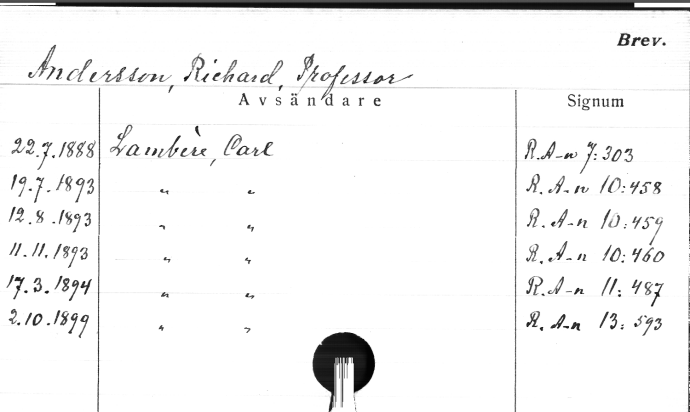 Brev.
Andersson, Richard, Professor
Avsändare Signum
22.7.1888 Lambère, Carl R.A-n 7:303
19.7.1893 " " R.A-n 10:458
12.8.1893 " " R.A-n 10:459
11.11.1893 " " R.A-n 10:460
17.3.1894 " " R.A-n 11:487
2.10.1899 " " R.A-n 13:593